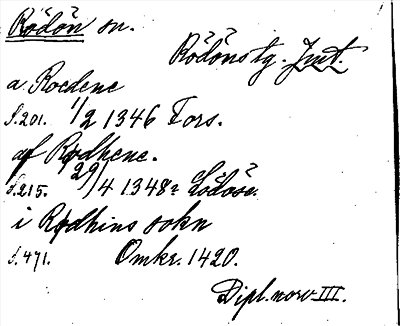 Rödön sn.
Rödöns tg. Jmt.
a Roedene
s.201. 1/2 1346 Tors.
af Rødhene.
s.215. 29/4 1348 Lödöse.
i Rødhins sokn
s.471. Omkr. 1420.
Dipl. norv. III.